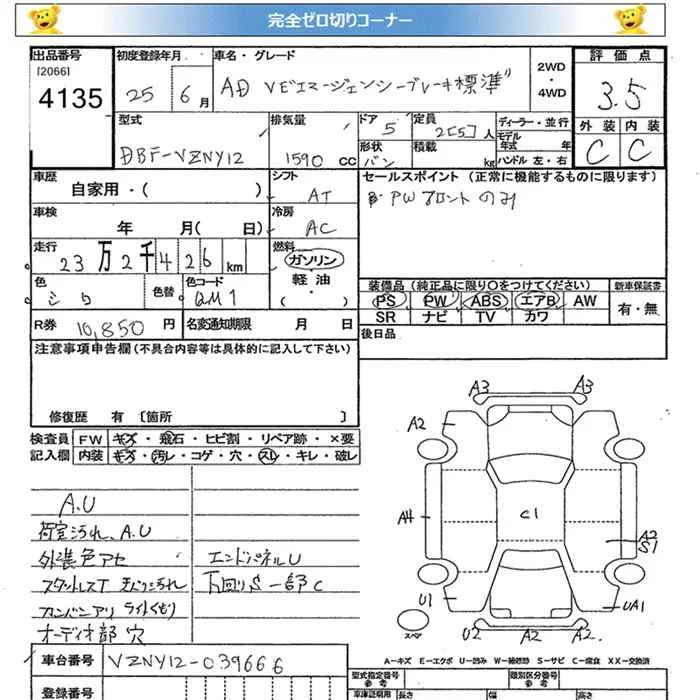 完全ゼロ切りコーナー
出品番号
[2066]
4135
初度登録年月
25 6月
車名・グレード
AD VEエマージェンシーブレーキ標準"
2WD
・
4WD
評価点
3.5
外装 内装
C C
型式
DBF-VZNY12
排気量
1590 CC
ドア 5
形状
バン
定員
2[5]人
積載
kg
ディーラー・並行
モデル
年式 年
ハンドル 左・右
車歴
自家用・( )
シフト
AT
車検
年 月( 日)
冷房
AC
走行
23万2千426km
燃料
ガソリン
・
軽油
・
色
シロ
色替
色コード
QM1
R券 10,850円
名変通知期限 月 日
セールスポイント(正常に機能するものに限ります)
PWフロントのみ
装備品(純正品に限り○をつけてください)
新車保証書
PS PW ABS エアB AW
SR ナビ TV カワ
有・無
後日品
注意事項申告欄(不具合内容等は具体的に記入して下さい)
修復歴 有 〔箇所 〕
検査員
記入欄
FW キズ・飛石・ヒビ割・リペア跡・×要
内装 キズ・汚レ・コゲ・穴・スレ・キレ・破レ
A.U
荷室汚れ、A.U
外装色アセ
エンドパネルU
スタットレスT 天バリ汚れ
下回りS 一部C
カンバンアリ ライトくもり
オーディオ部 穴
A3 A3
A2
A4
C1
A2
S1
U1
UA1
スペア
U2 A2 A2
A-キズ E-エクボ U-凹み W-補修跡 S-サビ C-腐食 XX-交換済
車台番号 VZNY12-039666
登録番号
型式指定番号
参考
類別区分番号
参考
車庫証明用 長さ 幅 高さ